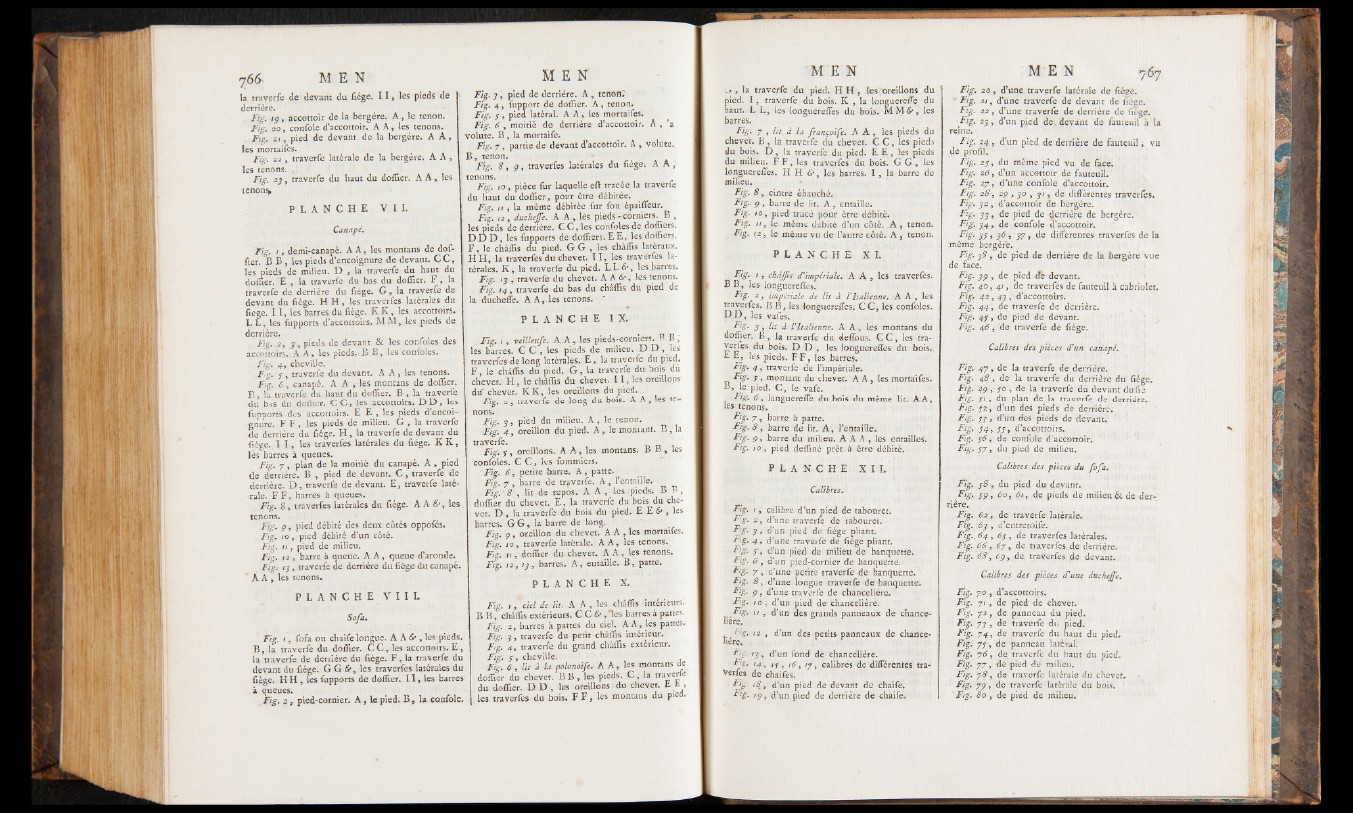 766 M E N
la traverſe de devant du ſiège. I I, les pieds de
derrière.
Fig. 19, accottoir de la bergère. A, le tenon.
Fig. 20, conſole d'accottoir. A A, les tenons.
Fig. 21, pied de devant de la bergère. A A,
les mortaiſes.
Fig. 22, traverſe latérale de la bergère. A A,
les tenons.
Fig. 23, traverſe du haut du doſſier. A A, les
tenons.
P L A N C H E V I I.
Canapé.
Fig. 1, demi-canapé. A A, les montans de doſ-
ſier. B B, les pieds d'encoignure de devant. C C,
les pieds de milieu. D, la traverſe du haut du
doſſier. E, la traverſe du bas du doſſier. F, la
traverſe de derrière du ſiège. G, la traverſe de
devant du ſiège. H H, les traverſes latérales du
ſiege. I I, les barres du ſiège. K K, les accottoirs.
L L, les ſupports d'accottoirs. M M, les pieds de
derrière.
Fig. 2, 3, pieds de devant & les conſoles des
accottoirs. A A, les pieds. B B, les conſoles.
Fig. 4, cheville.
Fig. 5, traverſe du devant. A A, les tenons.
Fig. 6, canapé. A A, les montans de doſſier.
B, la traverſe du haut du doſſier. B, la traverſe
du bas du doſſier. C C, les accottoirs. D D, les
ſupports des accottoirs. E E, les pieds d'encoi-
gnure. F F, les pieds de milieu. G, la traverſe
de derrière du ſiège. H, la traverſe de devant du
ſiège. I I, les traverſes latérales du ſiège. K K,
les barres à queues.
Fig. 7, plan de la moitié du canapé. A, pied
de derrière. B, pied de devant. C, traverſe de
derrière. D, traverſe de devant. E, traverſe laté-
rale. F F, barres à queues.
Fig. 8, traverſes latérales du ſiège. A A &, les
tenons.
Fig. 9, pied débité des deux côtés oppoſés.
Fig. 10, pied débité d'un côté.
Fig. 11, pied de milieu.
Fig. 12, barre à queue. A A, queue d'aronde.
Fig. 13, traverſe de derrière du ſiège du canapé.
A A, les tenons.
P L A N C H E V I I I.
Sofa.
Fig. 1, ſofa ou chaiſe longue. A A &, les pieds.
B, la traverſe du doſſier. C C, les accottoirs. E,
la traverſe de derrière du ſiège. F, la traverſe du
devant du ſiège. G G &, les traverſes latérales du
ſiège. H H, les ſupports de doſſier. I I, les barres
à queues.
Fig. 2, pied-cornier. A, le pied. B, la conſole.
M E N
Fig. 3, pied de derrière. A, tenon.
Fig. 4, ſupport de doſſier. A, tenon.
Fig. 5, pied latéral. A A, les mortaiſes.
Fig. 6, moitié de derrière d'accottoir. A, 'a
volute. B, la mortaiſe.
Fig. 7, partie de devant d'accottoir. A, volute.
B, tenon.
Fig. 8, 9, traverſes latérales du ſiège. A A,
tenons.
Fig. 10, pièce ſur laquelle eſt tracée la traverſe
du haut du doſſier, pour être débitée.
Fig. 11, la même débitée ſur ſon épaiſſeur.
Fig. 12, ducheſſe. A A, les pieds-corniers. B,
les pieds de derrière. C C, les conſoles de doſſiers.
D D D, les ſupports de doſſiers. E E, les doſſiers.
F, le châſſis du pied. G G, les châſſis latéraux.
H H, la traverſes du chevet. I I, les traverſes la-
térales. K, la traverſe du pied. L L &, les barres.
Fig. 13, traverſe du chevet. A A &, les tenons.
Fig. 14, traverſe du bas du châſſis du pied de
la ducheſſe. A A, les tenons.
P L A N C H E I X.
Fig. 1, veilleuſe. A A, les pieds-corniers. B B,
les barres. C C, les pieds de milieu. D D, les
traverſes de long latérales. E, la traverſe du pied.
F, le châſſis du pied. G, la traverſe du bois du
chevet. H, le châſſis du chevet. I I, les oreillons
du chevet. K K, les oreillons du pied.
Fig. 2, traverſe de long du bois. A A, les te-
nons.
Fig. 3, pied du milieu. A, le tenon.
Fig. 4, oreillon du pied. A, le montant. B, la
traverſe.
Fig. 5, oreillons. A A, les montans. B B, les
conſoles. C C, les ſommiers.
Fig. 6, petite barre. A, patte.
Fig. 7, barre de traverſe. A, l'entaille.
Fig. 8, lit de repos. A A, les pieds. B B,
doſſier du chevet. E, la traverſe du bois du che-
vet. D, la traverſe du bois du pied. E E &, les
barres. G G, la barre de long.
Fig. 9, oreillon du chevet. A A, les mortaiſes.
Fig. 10, traverſe latérale. A A, les tenons.
Fig. 11, doſſier du chevet. A A, les tenons.
Fig. 12, 13, barres. A, entaille. B, patte.
P L A N C H E X.
Fig. 1, ciel de lit. A A, les châſſis intérieurs.
B B, châſſis extérieurs. C C &, les barres à pattes.
Fig. 2, barres à pattes du ciel. A A, les pattes.
Fig. 3, traverſe du petit châſſis intérieur.
Fig. 4, traverſe du grand châſſis extérieur.
Fig. 5, cheville.
Fig. 6, lit à la polonoiſe. A A, les montans de
doſſier du chevet. B B, les pieds. C, la traverſe
du doſſier. D D, les oreillons du chevet. E E,
les traverſes du bois. F F, les montans du pied.
M E N
la traverſe du pied. H H, les oreillons du
pied. I, traverſe du bois. K, la longuereſſe du
haut. L L, les longuereſſes du bois. M M &, les
barres.
Fig. 7, lit à la françoiſe. A A, les pieds du
chevet. B, la traverſe du chevet. C C, les pieds
du bois. D, la traverſe du pied. E E, les pieds
du milieu. F F, les traverſes du bois. G G, les
longuereſſes. H H &, les barres. I, la barre de
milieu.
Fig. 8, cintre ébauché.
Fig. 9, barre de lit. A, entaille.
Fig. 10, pied tracé pour être débité.
Fig. 11, le même débité d'un côté. A, tenon.
Fig. 12, le même vu de l'autre côté. A, tenon.
P L A N C H E X I.
Fig. 1, châſſis d'impériale. A A, les traverſes.
B B, les longuereſſes.
Fig. 2, impériale de lit à l'Italienne. A A, les
traverſes. B B, les longuereſſes. C C, les conſoles.
D D, les vaſes.
Fig. 3, lit à l'Italienne. A A, les montans du
doſſier. B, la traverſe du deſſous. C C, les tra-
verſes du bois. D D, les longuereſſes du bois.
E E, les pieds. F F, les barres.
Fig. 4, traverſe de l'impériale.
Fig. 5, montant du chevet. A A, les mortaiſes.
B, le pied. C, le vaſe.
Fig. 6, languereſſe du bois du même lit. A A,
les tenons.
Fig. 7, barre à patte.
Fig. 8, barre de lit. A, l'entaille.
Fig. 9, barre du milieu. A A A, les entailles.
Fig. 10, pied deſſiné prêt à être débité.
P L A N C H E X I I.
Calibres.
Fig. 1, calibre d'un pied de tabouret.
Fig. 2, d'une traverſe de tabouret.
Fig. 3, d'un pied de ſiège pliant.
Fig. 4, d'une traverſe de ſiège pliant.
Fig. 5, d'un pied de milieu de banquette.
Fig. 6, d'un pied-cornier de banquette.
Fig. 7, d'une petite traverſe de banquette.
Fig. 8, d'une longue traverſe de banquette.
Fig. 9, d'une traverſe de chancelière.
Fig. 10, d'un pied de chancelière.
Fig. 11, d'un des grands panneaux de chance-
lière.
Fig. 12, d'un des petits panneaux de chance-
lière.
Fig. 13, d'un fond de chancelière.
Fig. 14, 15, 16, 17, calibres de différentes tra-
verſes de chaiſes.
Fig. 18, d'un pied de devant de chaiſe.
Fig. 19, d'un pied de derrière de chaiſe.
M E N 767
Fig. 20, d'une traverſe latérale de ſiège.
Fig. 21, d'une traverſe de devant de ſiège.
Fig. 22, d'une traverſe de derrière de ſiège.
Fig. 23, d'un pied de devant de fauteuil à la
reine.
Fig. 24, d'un pied de derrière de fauteuil, vu
de profil.
Fig. 25, du même pied vu de face.
Fig. 26, d'un accottoir de fauteuil.
Fig. 27, d'une conſole d'accottoir.
Fig. 28, 29, 30, 31, de différentes traverſes.
Fig. 32, d'accottoir de bergère.
Fig. 33, de pied de derrière de bergère.
Fig. 34, de conſole d'accottoir.
Fig. 35, 36, 37, de différentes traverſes de la
même bergère.
Fig. 38, de pied de derrière de la bergère vue
de face.
Fig. 39, de pied de devant.
Fig. 40, 41, de traverſes de fauteuil à cabriolet.
Fig. 42, 43, d'accottoirs.
Fig. 44, de traverſe de derrière.
Fig. 45, de pied de devant.
Fig. 46, de traverſe de ſiège.
Calibres des pièces d'un canapé.
Fig. 47, de la traverſe de derrière.
Fig. 48, de la traverſe du derrière du ſiège.
Fig. 49, 50, de la traverſe du devant du
Fig. 51, du plan de la traverſe de derrière.
Fig. 52, d'un des pieds de derrière.
Fig. 53, d'un des pieds de devant.
Fig. 54, 55, d'accottoirs.
Fig. 56, de conſole d'accottoir.
Fig. 57, du pied de milieu.
Calibres des pièces du ſofa.
Fig. 58, du pied du devant.
Fig. 59, 60, 61, de pieds de milieu & de der-
rière.
Fig. 62, de traverſe latérale.
Fig. 63, d'entretoiſe.
Fig. 64, 65, de traverſes latérales.
Fig. 66, 67, de traverſes de derrière.
Fig. 68, 69, de traverſes de devant.
Calibres des pièces d'une ducheſſe.
Fig. 70, d'accottoirs.
Fig. 71, de pied de chevet.
Fig. 72, de panneau du pied.
Fig. 73, de traverſe du pied.
Fig. 74, de traverſe du haut du pied.
Fig. 75, de panneau latéral.
Fig. 76, de traverſe du haut du pied.
Fig. 77, de pied de milieu.
Fig. 78, de traverſe latérale du chevet.
Fig. 79, de traverſe latérale du bois.
Fig. 80, de pied de milieu.